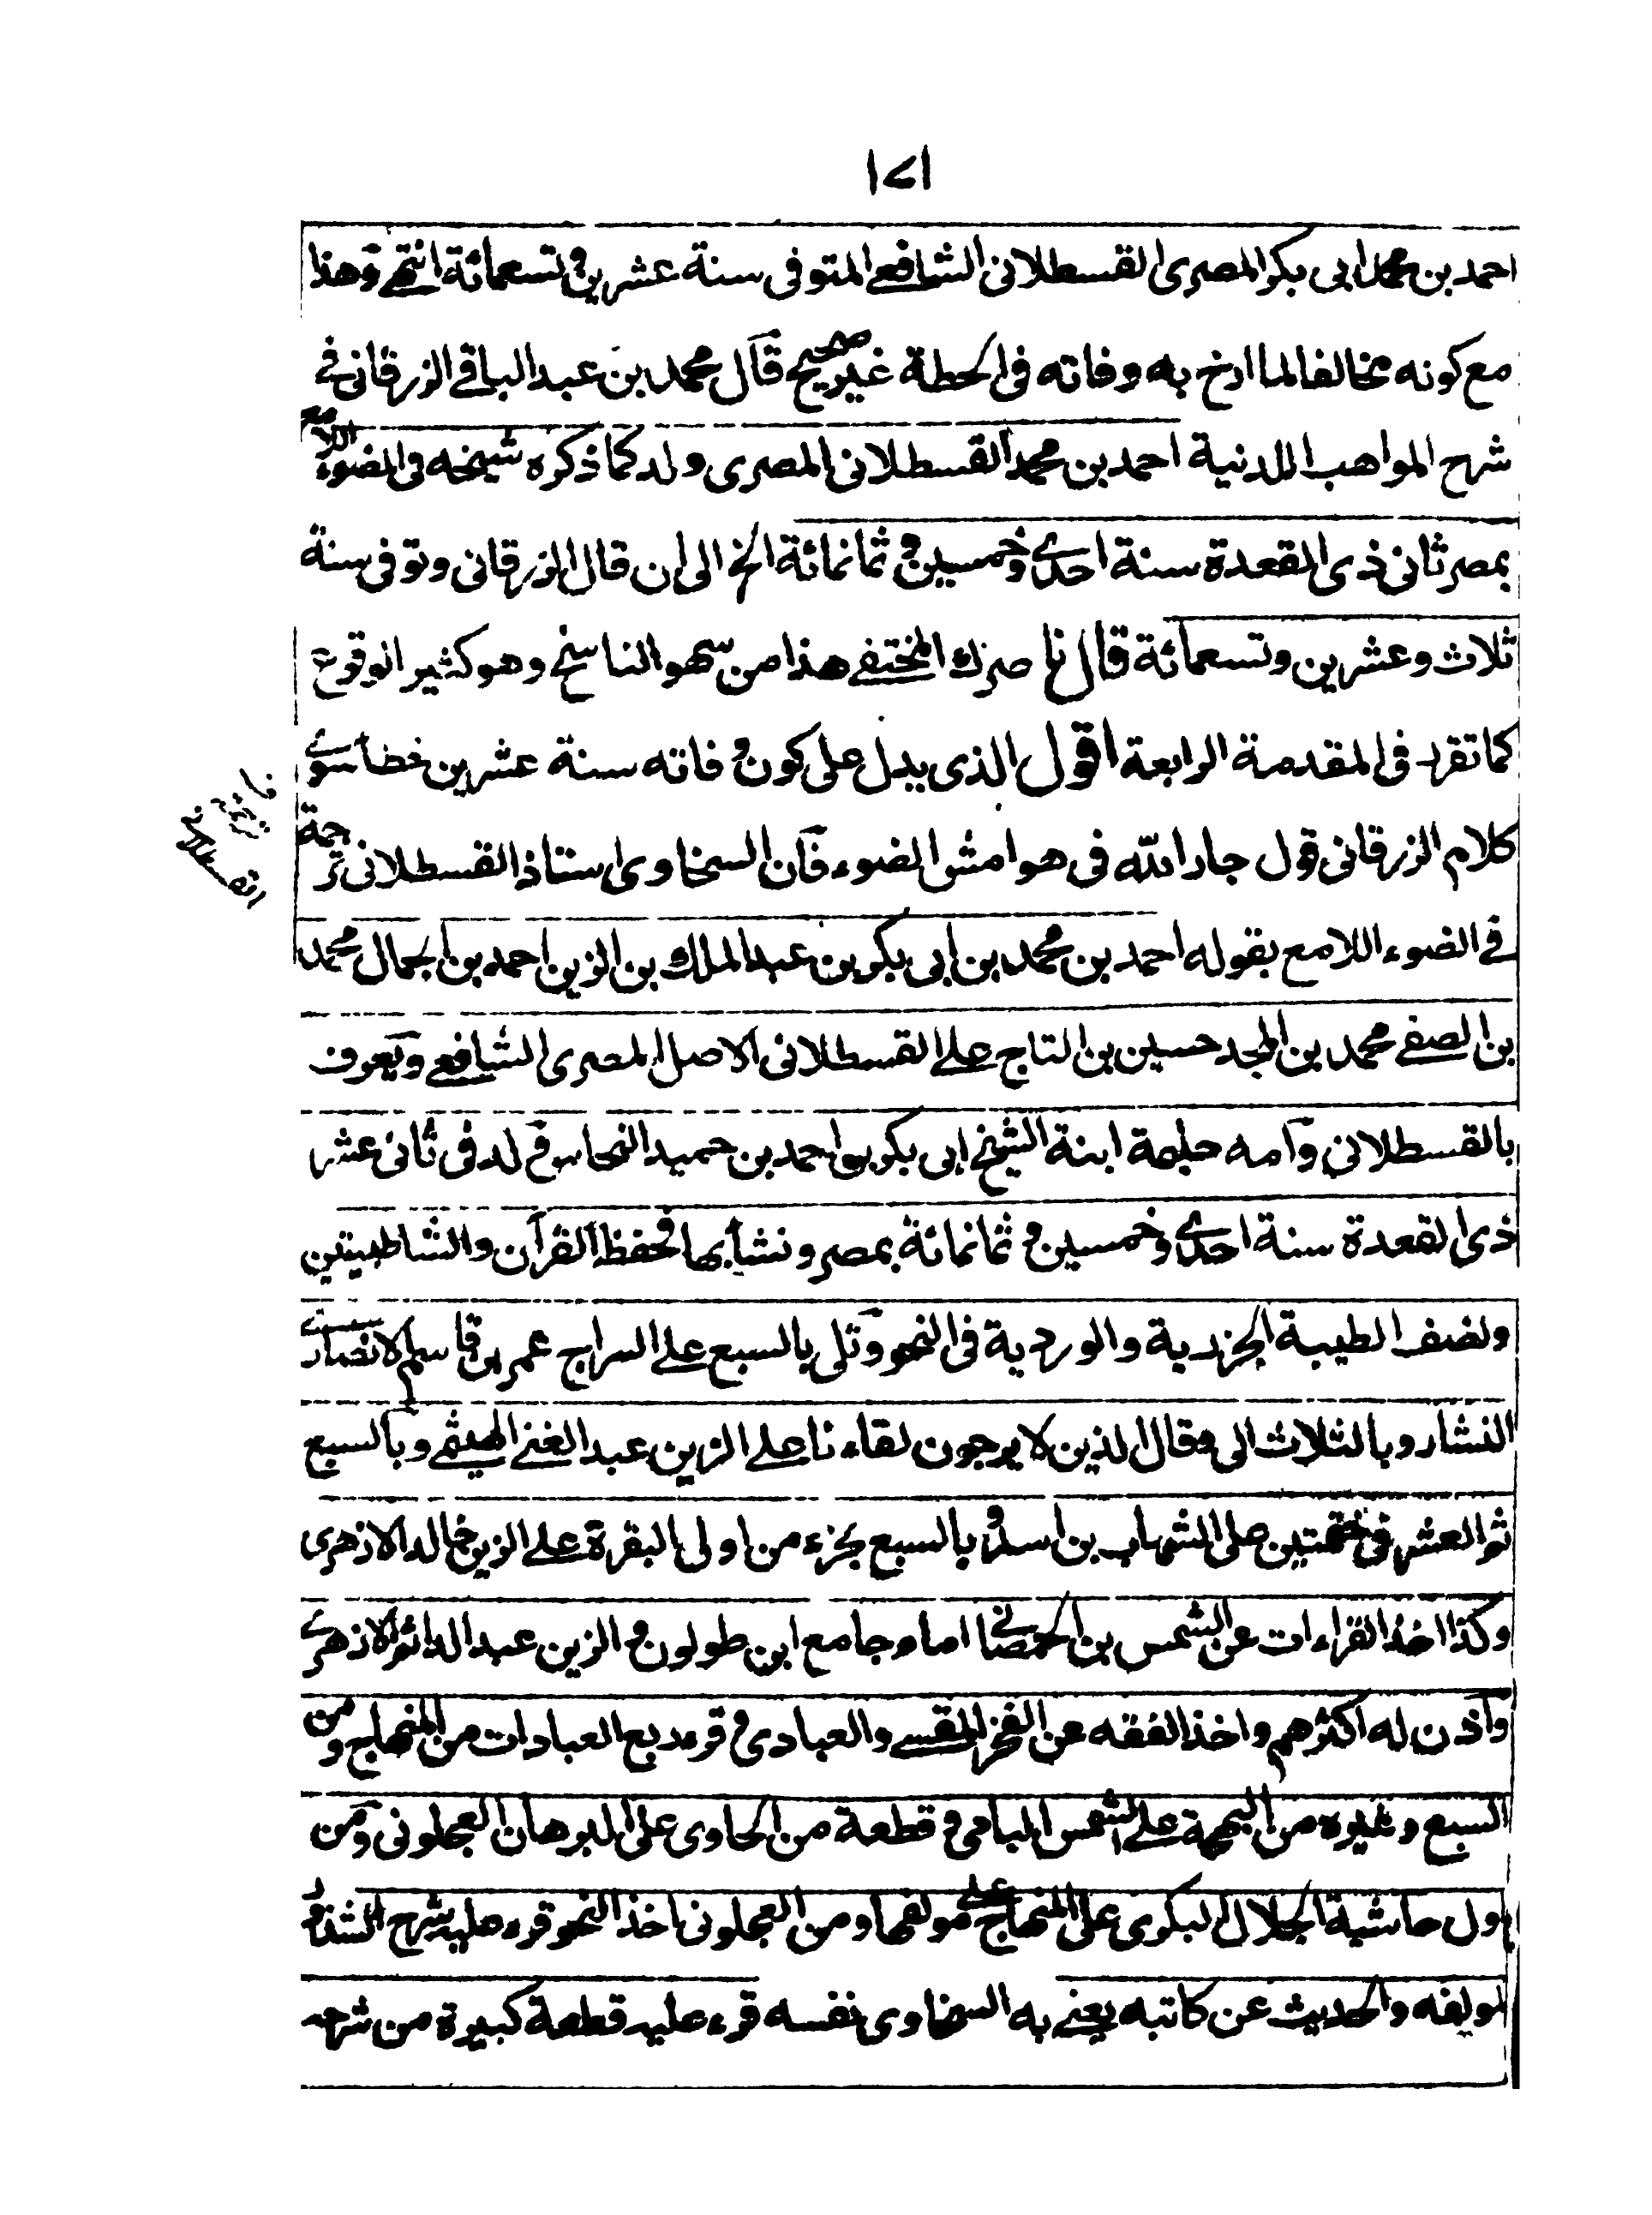 ١٧١
احمد بن محمد ابى بكر المصرى القسطلانى الشافعے المتوفى سنة عشرين و تسعمائة انتهى وهذا
مع كونه مخالفا لما ارخ به وفاته فى الحطة غير صحيح قال محمد بن عبد الباقے الزرقانى فے
شرح المواهب اللدنية احمد بن محمد القسطلانى المصرى ولد كما ذكره شيخه فى الضوء اللامع
بمصر ثانى ذى القعدة سنة احدے وخمسين و ثمانمائة الخ الى ان قال الزرقانى وتوفى سنة
ثلاث وعشرين وتسعمائة قال ناصرك المختفے هذا من سهو الناسخ وهو كثير الوقوع
كما تقرر فى المقدمة الرابعة اقول الذى يدل على كون وفاته سنة عشرين خطأ سوے
كلام الزرقانى قول جار الله فى هوامش الضوء فان السخاوى استاذ القسطلانى ترجمة
فے الضوء اللامع بقوله احمد بن محمد بن ابى بكر بن عبد الملك بن الزين احمد بن الجمال محمد
بن الصفے محمد بن المجد حسين بن التاج علے القسطلانى الاصل المصرى الشافعے ويعرف
بالقسطلانى وامه حليمة ابنة الشيخ ابى بكر بن احمد بن حميد النحاس ولد فى ثانى عشر
ذى القعدة سنة احدے وخمسين و ثمانمائة بمصر ونشأ بها فحفظ القرآن والشاطبيتين
ونصف الطيبة الجزرية والوردية فى النحو وتلى بالسبع علے السراج عمر بن قاسم الانصارے
النشار وبالثلاث الى وقال الذين لا يرجون لقاءنا علے الزين عبد الغنے الهيثمے وبالسبع
ثم العشر فى ختمتين على الشهاب بن اسد و بالسبع بجزء من اولى البقرة علے الزين خالد الازهرى
وكذا اخذ القراءات عن الشمس بن الحمصانے امام جامع ابن طولون و الزين عبد الدائم الازهرے
واذن له اكثرهم واخذ الفقه عن الفخر المقسے والعبادى و قرء ربع العبادات من المنهاج ومن
البيع وغيره من البهجة علے الشمس البامى و قطعة من الحاوى على البرهان العجلونى ومن
اول حاشية الجلال البكرى على المنهاج علے مولفها ومن العجلونى اخذ النحو قرء عليه شرح الشذور
لمولفه والحديث عن كاتبه يعنے به السخاوى نفسه قرء عليه قطعة كبيرة من شرحه
القسطلانے